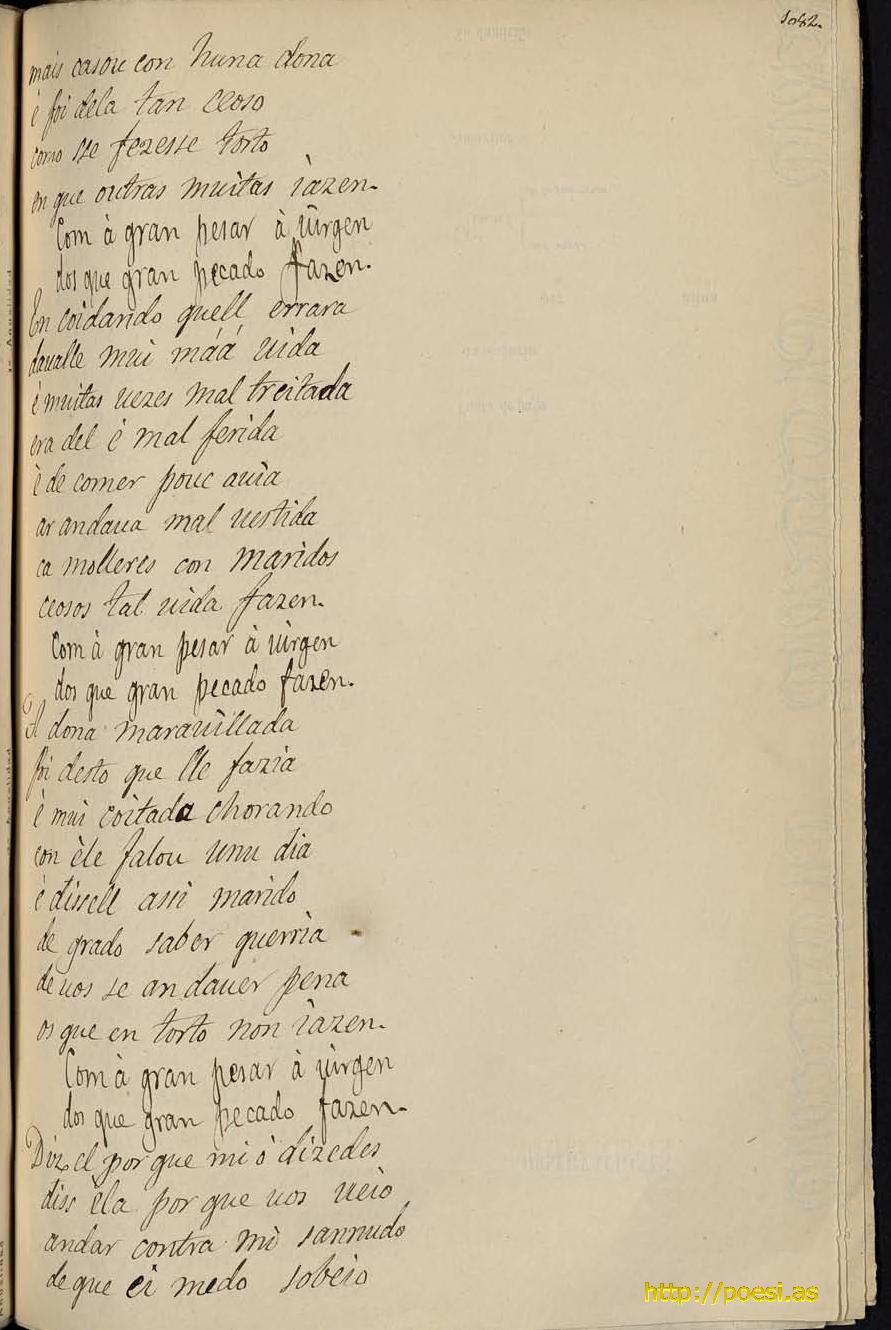 1082.
mais casou con huna dona
é foi dela tan ceoso
como sse fezesse torto
en que outras muitas ìazen.
Com à gran pesar à uìrgen
dos que gran pecado fazen.
En coidando quell errara
daualle mui máá uida
é muitas uezes mal treitada
era del é mal ferida
è de comer pouc auìa
ar andaua mal uestida
ca molleres con maridos
ceosos tal uida fazen.
Com à gran pesar à uìrgen
dos que gran pecado fazen.
A dona marauillada
foi desto que lle fazia
é mui coitada chorando
con èle falou unu dia
é dissell assi marido
de grado saber querria
de uos se an dauer pena
os que en torto non ìazen.
Com à gran pesar à uìrgen
dos que gran pecado fazen.
Diz el por que mi ó dizedes
diss èla por que uos ueio
andar contra mì sannudo
de que ei medo sobeio
http://poesi.as